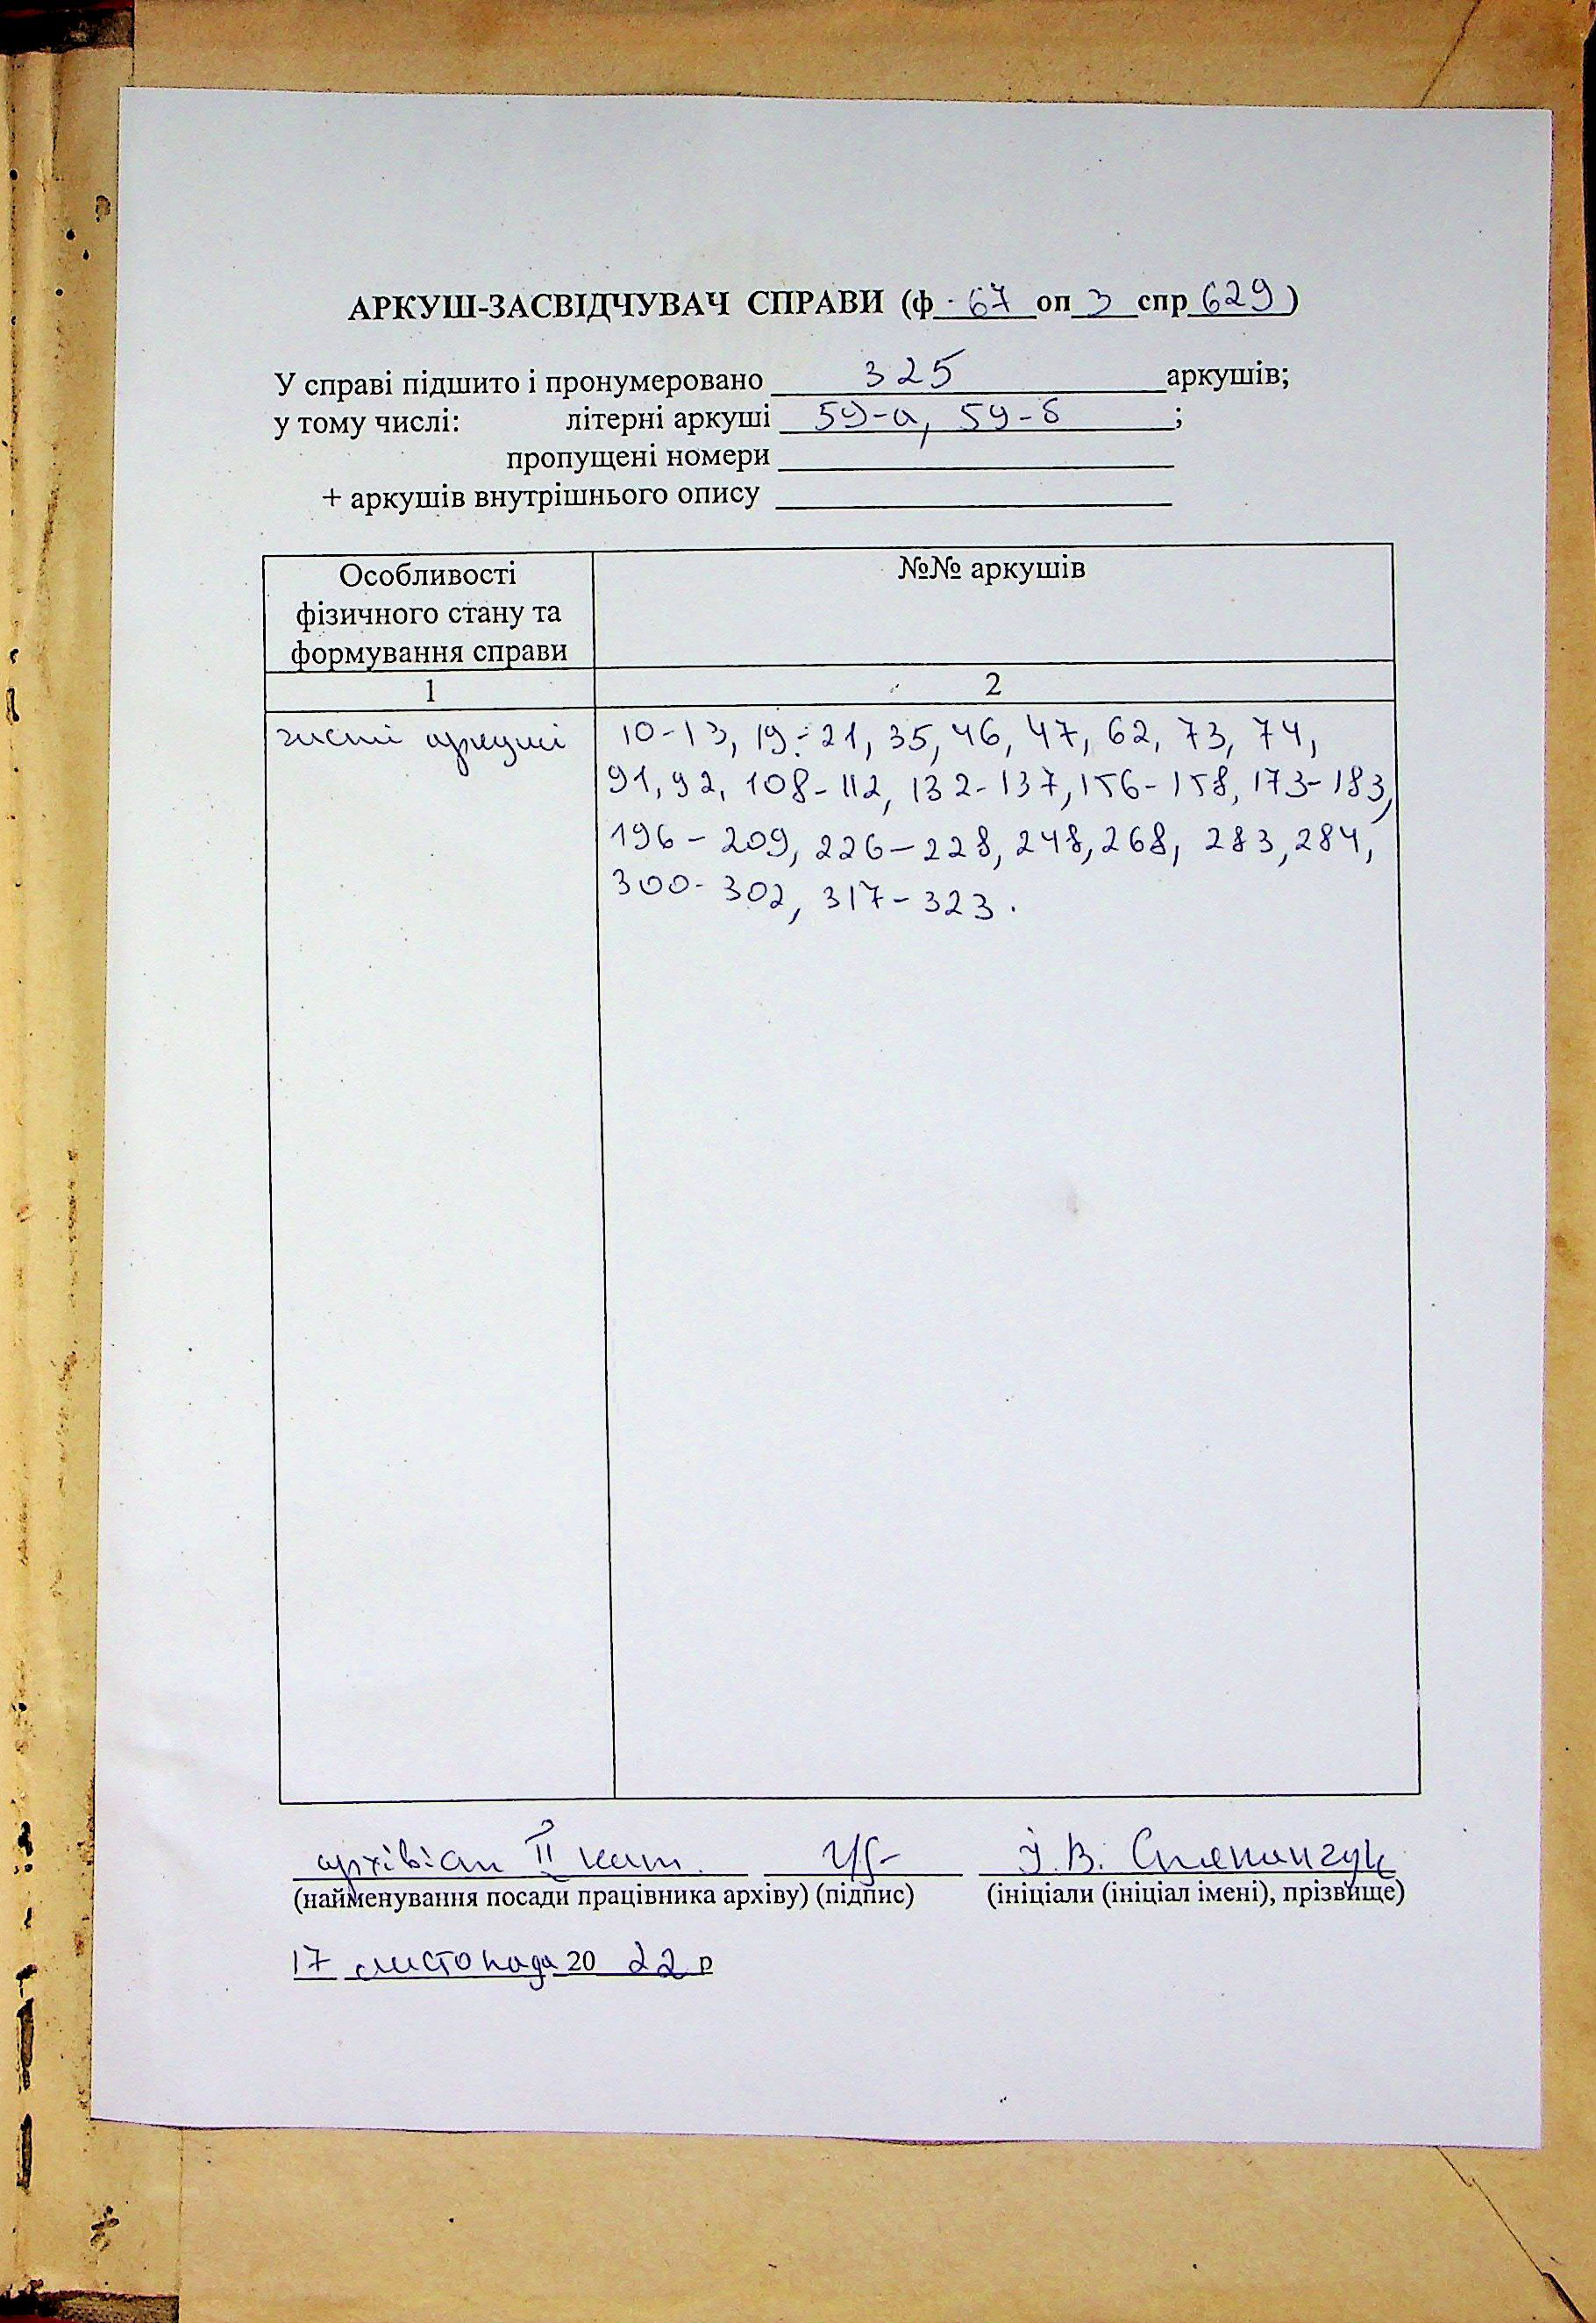 АРКУШ-ЗАСВІДЧУВАЧ СПРАВИ (ф. 67 оп 3 спр 629)
У справі підшито і пронумеровано 325 аркушів;
у тому числі: літерні аркуші 59-а, 59-б ;
пропущені номери
+ аркушів внутрішнього опису
Особливості
фізичного стану та
формування справи
№№ аркушів
1
2
чисті аркуші
10-13, 19-21, 35, 46, 47, 62, 73, 74,
91, 92, 108-112, 132-137, 156-158, 173-183,
196-209, 226-228, 248, 268, 283, 284,
300-302, 317-323.
архівіст II кат. І.В. Степанчук
(найменування посади працівника архіву) (підпис) (ініціали (ініціал імені), прізвище)
17 листопада 20 22 р